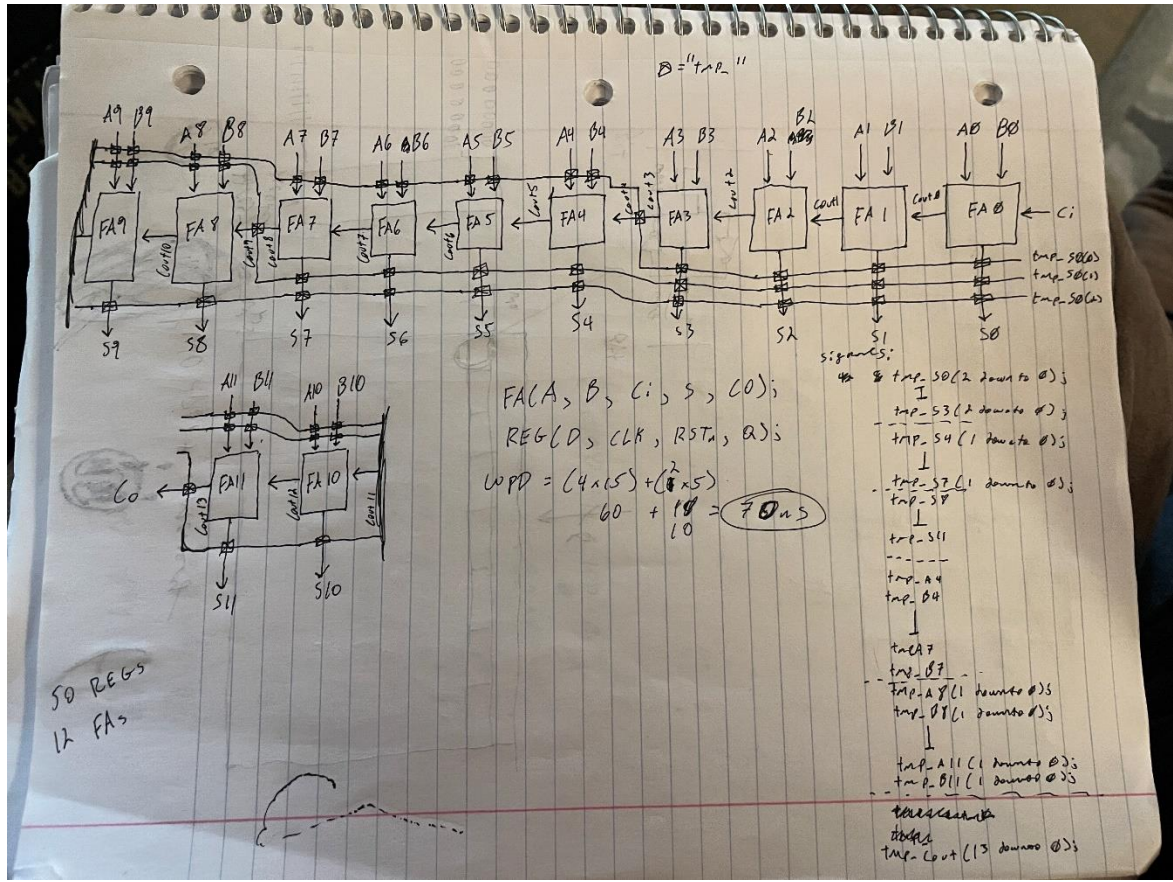 ⊠="tmp_"
A9 B9 A8 B8 A7 B7 A6 B6 A5 B5 A4 B4 A3 B3 A2 B2 A1 B1 A0 B0
FA9 Cout10 FA8 Cout9 Cout8 FA7 Cout7 FA6 Cout6 FA5 Cout5 FA4 Cout4 Cout3 FA3 Cout2 FA2 Cout1 FA1 Cout0 FA0 Ci
tmp_S0(0)
tmp_S0(1)
tmp_S0(2)
S9 S8 S7 S6 S5 S4 S3 S2 S1 S0
A11 B11 A10 B10
Co Cout13 FA11 Cout12 FA10 Cout11
S11 S10
FA(A, B, Ci, S, CO);
REG(D, CLK, RSTn, Q);
WPD = (4x15) + (2x5)
60 + 10 = 70ns
10
50 REGS
12 FAs
signals:
tmp_S0(2 downto 0);
tmp_S3(2 downto 0);
tmp_S4(1 downto 0);
tmp_S7(1 downto 0);
tmp_S8
tmp_S11
tmp_A4
tmp_B4
tmpA7
tmp_B7
tmp_A8(1 downto 0);
tmp_B8(1 downto 0);
tmp_A11(1 downto 0);
tmp_B11(1 downto 0);
tmp_Cout(13 downto 0);